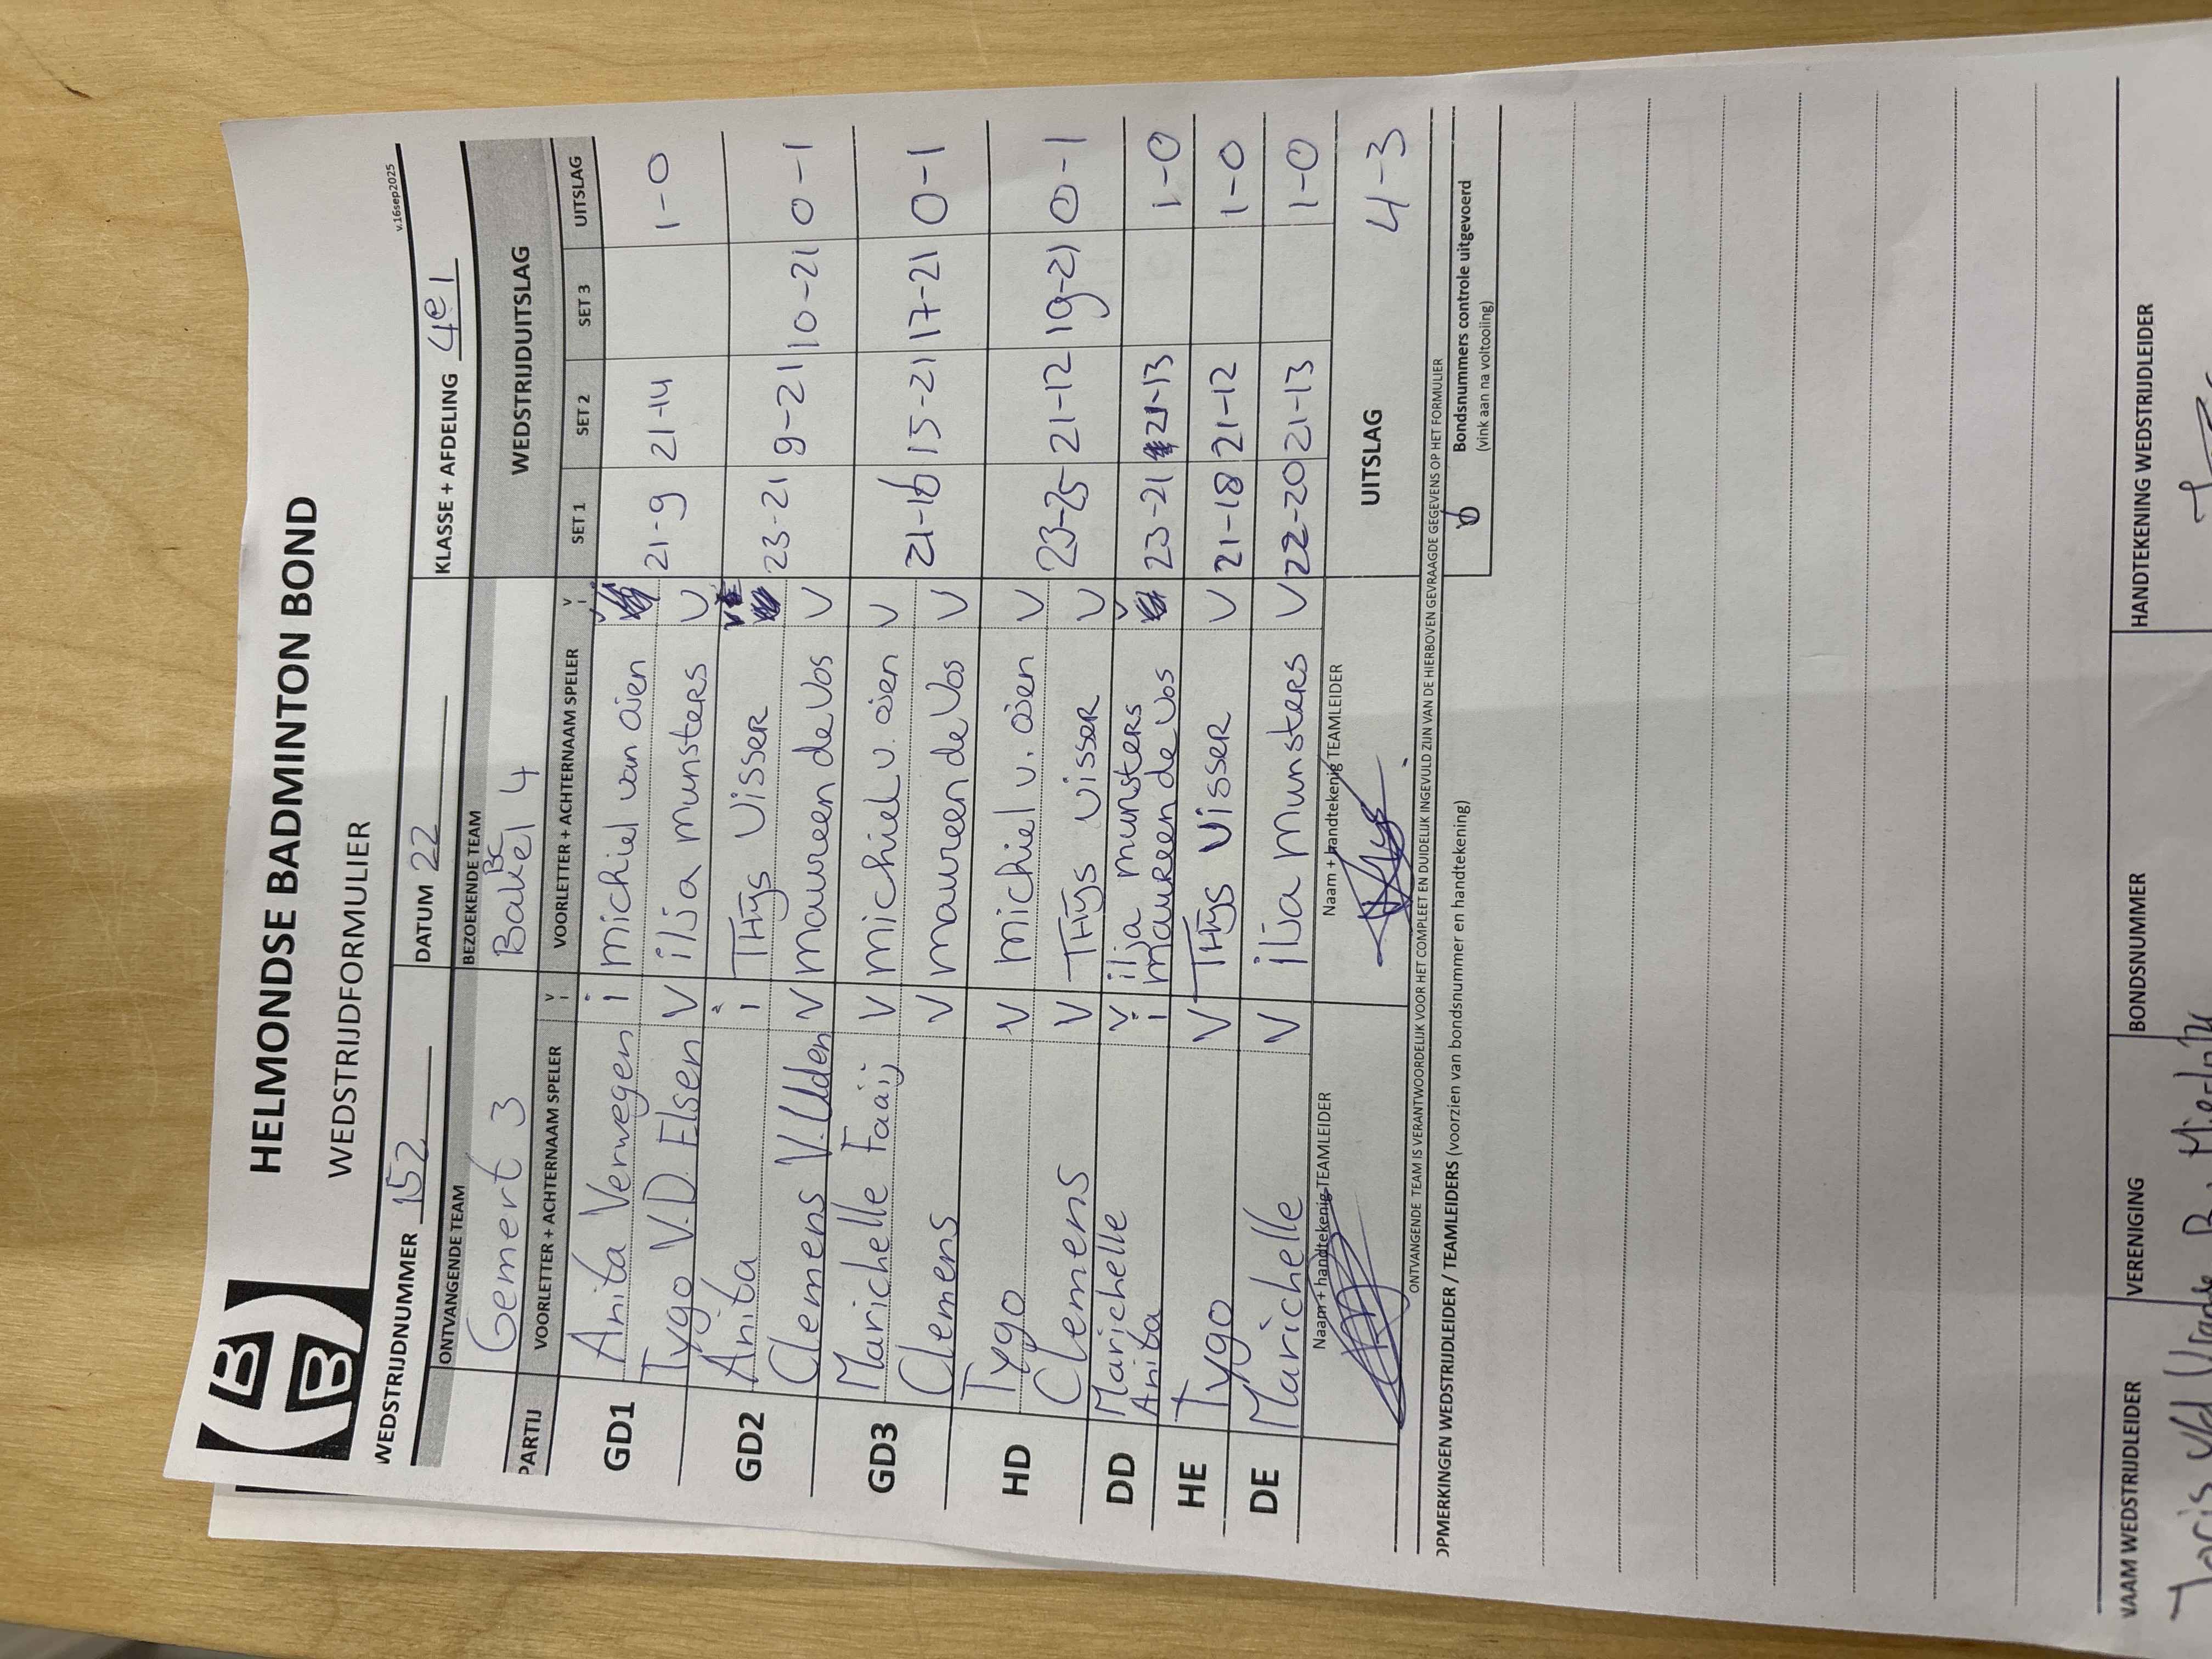 HELMONDSE BADMINTON BOND
WEDSTRIJDFORMULIER
v.16sep2025
WEDSTRIJDNUMMER 152 DATUM 22 KLASSE + AFDELING 4e 1
ONTVANGENDE TEAM BEZOEKENDE TEAM WEDSTRIJDUITSLAG
Gemert 3 BC Bakel 4
PARTIJ VOORLETTER + ACHTERNAAM SPELER V I VOORLETTER + ACHTERNAAM SPELER V I SET 1 SET 2 SET 3 UITSLAG
GD1 Anita Verwegen i michiel van oien V
Tygo V.D. Elsen V ilja munsters V 21-9 21-14 1-0
GD2 Anita i THijs Visser V
Clemens V. Uden V maureen de Vos V 23-21 9-21 10-21 0-1
GD3 Marichelle Faaij V michiel v. oien V
Clemens V maureen de Vos V 21-16 15-21 17-21 0-1
HD Tygo V michiel v. oien V
Clemens V THijs Visser V 23-25 21-12 19-21 0-1
DD Marichelle V ilja munsters V
Anita i maureen de Vos 23-21 21-13 1-0
HE Tygo V THijs Visser V 21-18 21-12 1-0
DE Marichelle V ilja munsters V 22-20 21-13 1-0
Naam + handtekenig TEAMLEIDER Naam + handtekenig TEAMLEIDER UITSLAG 4-3
ONTVANGENDE TEAM IS VERANTWOORDELIJK VOOR HET COMPLEET EN DUIDELIJK INGEVULD ZIJN VAN DE HIERBOVEN GEVRAAGDE GEGEVENS OP HET FORMULIER
OPMERKINGEN WEDSTRIJDLEIDER / TEAMLEIDERS (voorzien van bondsnummer en handtekening)
Bondsnummers controle uitgevoerd
(vink aan na voltooling)
NAAM WEDSTRIJDLEIDER VERENIGING BONDSNUMMER HANDTEKENING WEDSTRIJDLEIDER
Joris vd